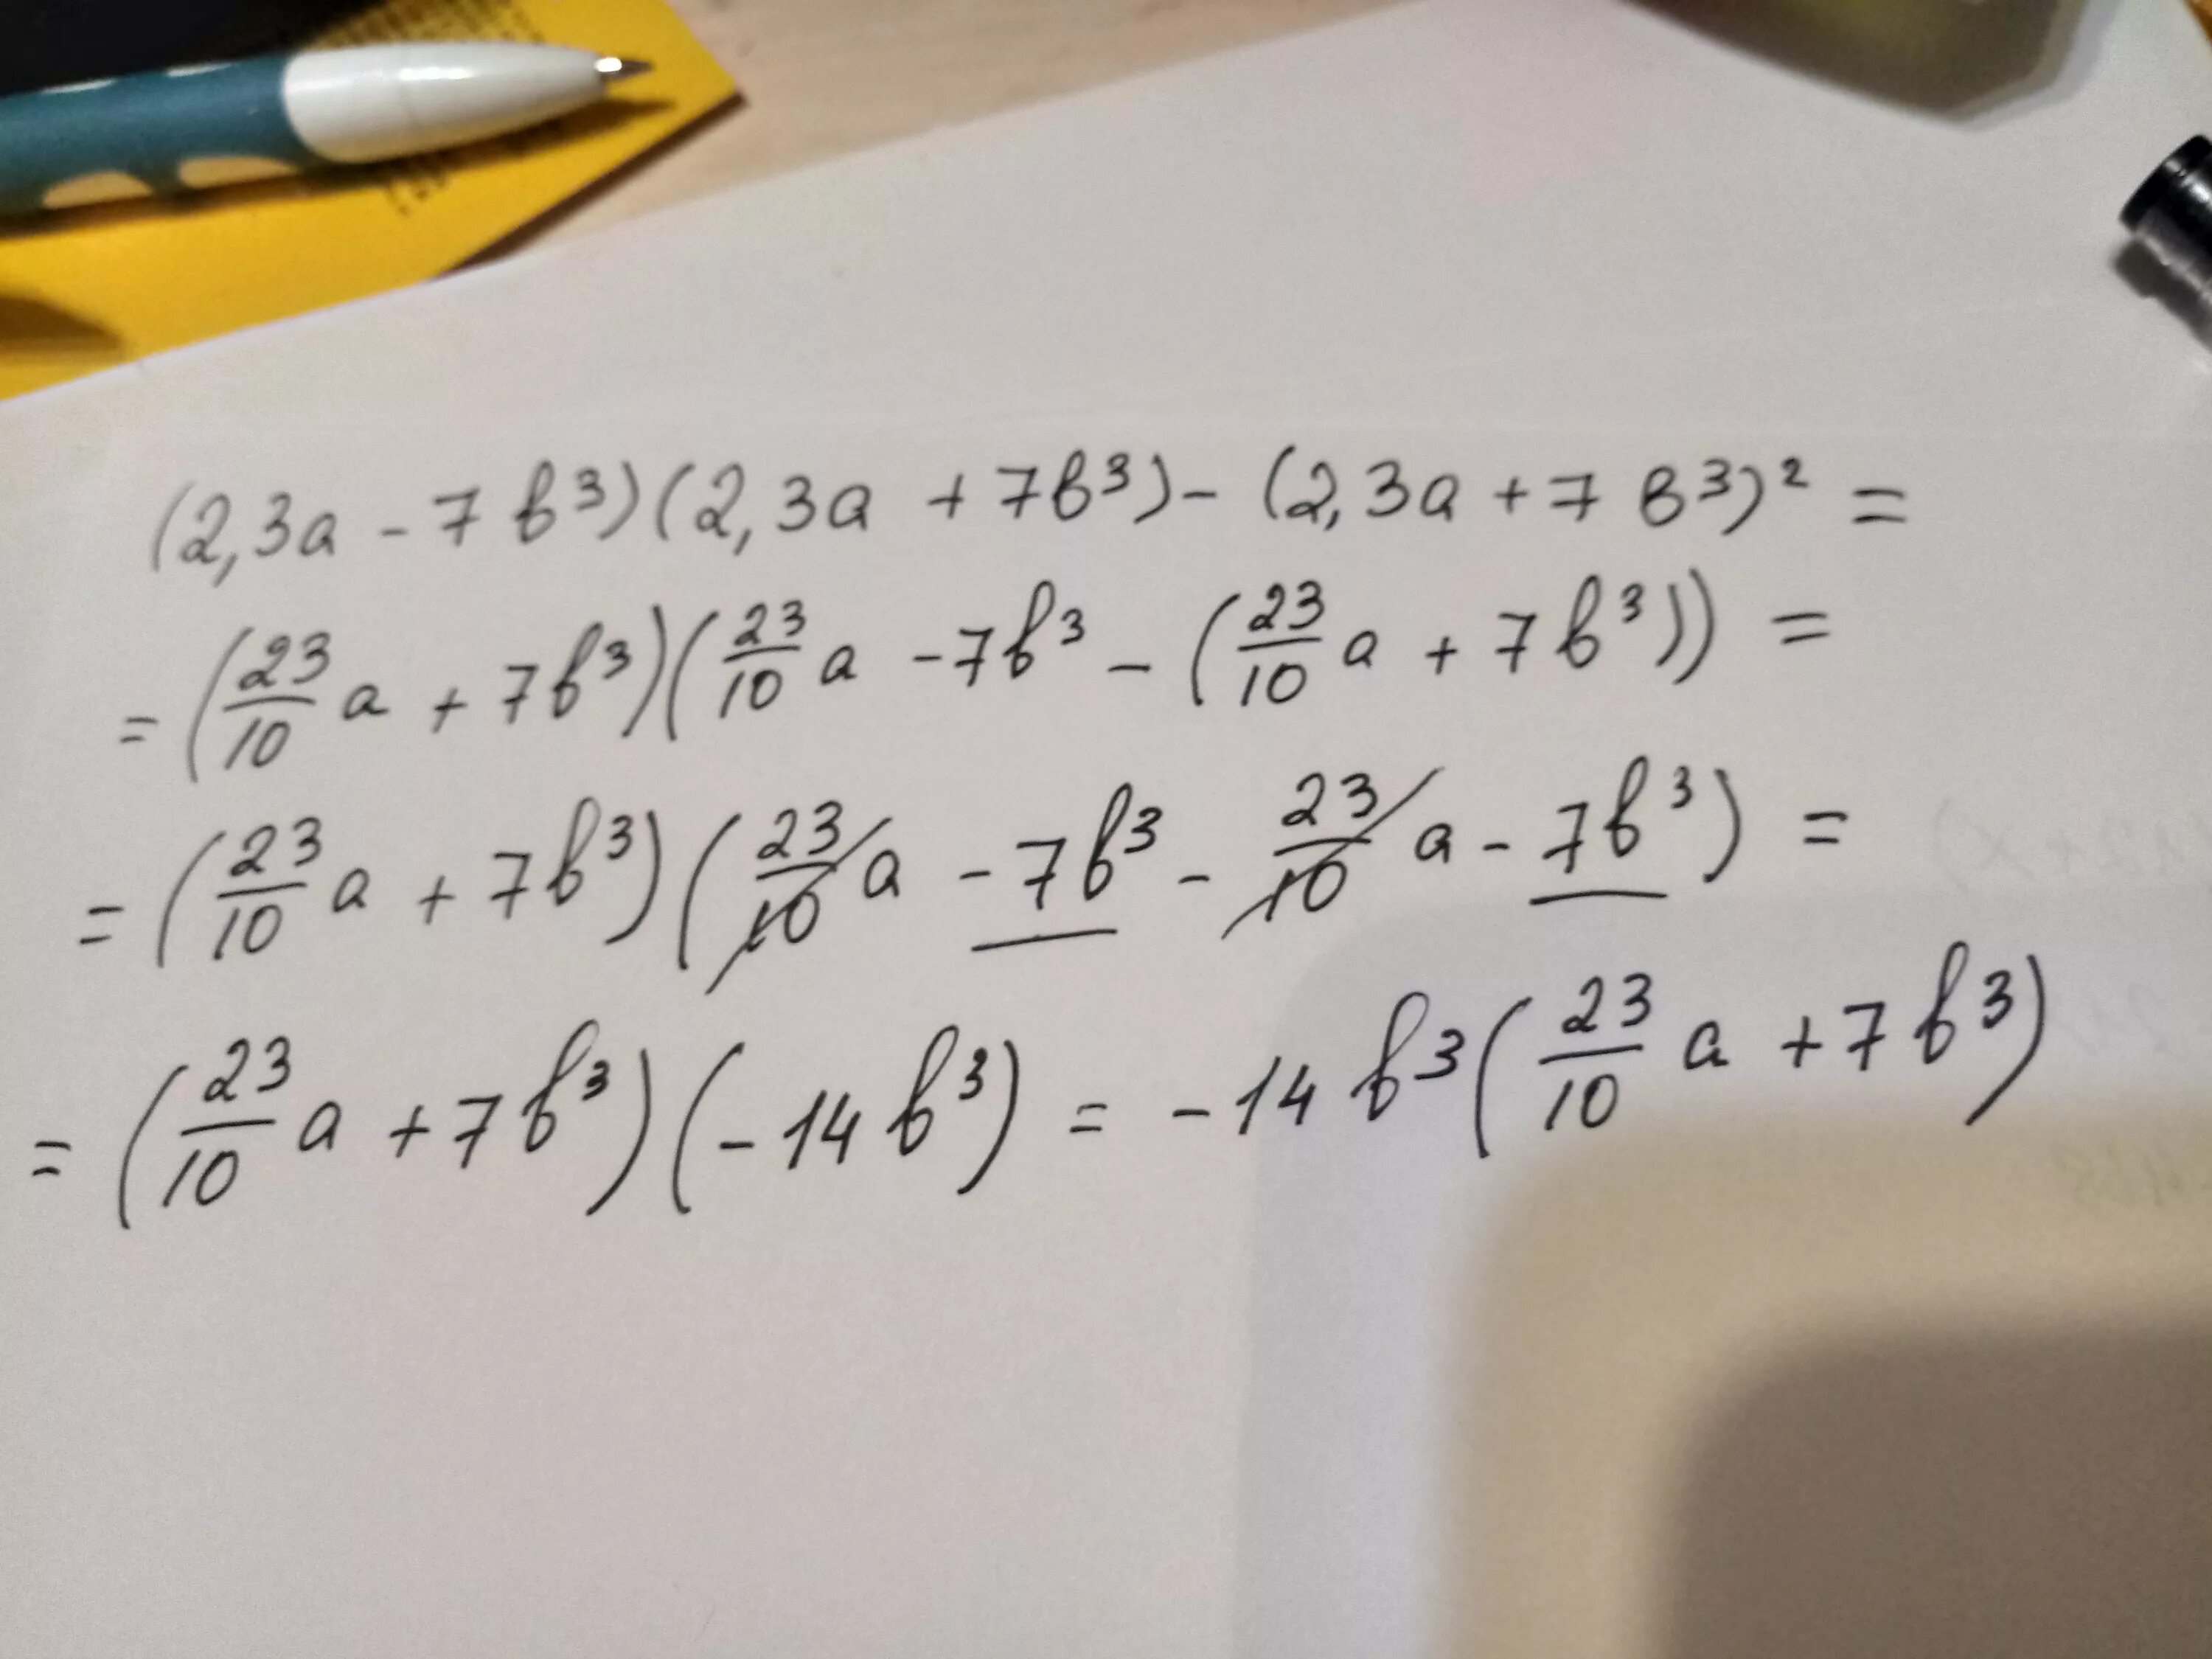 (2,3a - 7b³)(2,3a + 7b³) - (2,3a + 7b³)² =
= (23/10 a + 7b³)(23/10 a - 7b³ - (23/10 a + 7b³)) =
= (23/10 a + 7b³)(23/10 a - 7b³ - 23/10 a - 7b³) =
= (23/10 a + 7b³)(-14b³) = -14b³(23/10 a + 7b³)